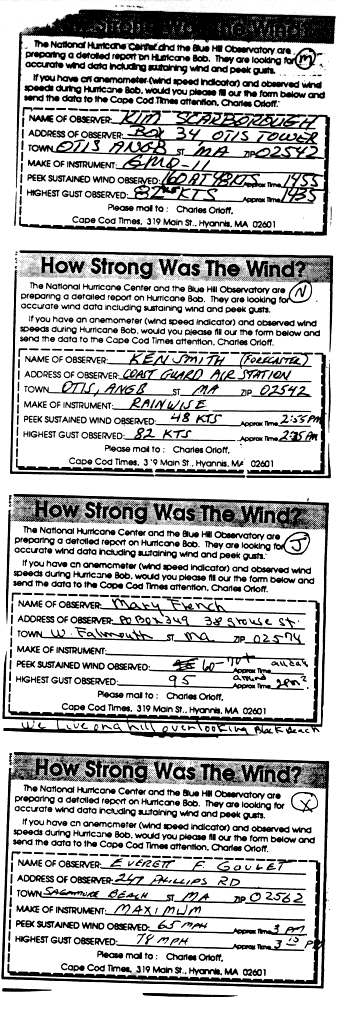 How Strong Was The Wind?
The National Hurricane Center and the Blue Hill Observatory are
preparing a detailed report on Hurricane Bob. They are looking for
accurate wind data including sustaining wind and peek gusts.
M
If you have an anemometer (wind speed indicator) and observed wind
speeds during Hurricane Bob, would you please fill our the form below and
send the data to the Cape Cod Times attention, Charles Orloff.
NAME OF OBSERVER: KIM SCARBOROUGH
ADDRESS OF OBSERVER: BOX 34 OTIS TOWER
TOWN OTIS ANGB ST MA ZIP 02542
MAKE OF INSTRUMENT: GMQ-11
PEEK SUSTAINED WIND OBSERVED: Approx Time 1455
HIGHEST GUST OBSERVED: 82 KTS Approx Time 1435
Please mail to: Charles Orloff,
Cape Cod Times, 319 Main St., Hyannis, MA 02601
How Strong Was The Wind?
The National Hurricane Center and the Blue Hill Observatory are
preparing a detailed report on Hurricane Bob. They are looking for
accurate wind data including sustaining wind and peek gusts.
N
If you have an anemometer (wind speed indicator) and observed wind
speeds during Hurricane Bob, would you please fill our the form below and
send the data to the Cape Cod Times attention, Charles Orloff.
NAME OF OBSERVER: KEN SMITH (FORECASTER)
ADDRESS OF OBSERVER: COAST GUARD AIR STATION
TOWN OTIS, ANGB ST MA ZIP 02542
MAKE OF INSTRUMENT: RAINWISE
PEEK SUSTAINED WIND OBSERVED: 48 KTS Approx Time 2:55 PM
HIGHEST GUST OBSERVED: 82 KTS Approx Time
Please mail to: Charles Orloff,
Cape Cod Times, 319 Main St., Hyannis, MA 02601
How Strong Was The Wind?
The National Hurricane Center and the Blue Hill Observatory are
preparing a detailed report on Hurricane Bob. They are looking for
accurate wind data including sustaining wind and peek gusts.
J
If you have an anemometer (wind speed indicator) and observed wind
speeds during Hurricane Bob, would you please fill our the form below and
send the data to the Cape Cod Times attention, Charles Orloff.
NAME OF OBSERVER: Mary French
ADDRESS OF OBSERVER: PO Box 349 38 Grouse St.
TOWN W. Falmouth ST MA ZIP 02574
MAKE OF INSTRUMENT:
PEEK SUSTAINED WIND OBSERVED: 60-70+ Approx Time
HIGHEST GUST OBSERVED: 95 Approx Time around 2pm?
Please mail to: Charles Orloff,
Cape Cod Times, 319 Main St., Hyannis, MA 02601
We live on a hill overlooking Black Beach
How Strong Was The Wind?
The National Hurricane Center and the Blue Hill Observatory are
preparing a detailed report on Hurricane Bob. They are looking for
accurate wind data including sustaining wind and peek gusts.
X
If you have an anemometer (wind speed indicator) and observed wind
speeds during Hurricane Bob, would you please fill our the form below and
send the data to the Cape Cod Times attention, Charles Orloff.
NAME OF OBSERVER: EVERETT F. GOULET
ADDRESS OF OBSERVER: 247 PHILLIPS RD
TOWN SAGAMORE BEACH ST MA ZIP 02562
MAKE OF INSTRUMENT: MAXIMUM
PEEK SUSTAINED WIND OBSERVED: 65 MPH Approx Time 3 PM
HIGHEST GUST OBSERVED: 78 MPH Approx Time 3 15 PM
Please mail to: Charles Orloff,
Cape Cod Times, 319 Main St., Hyannis, MA 02601